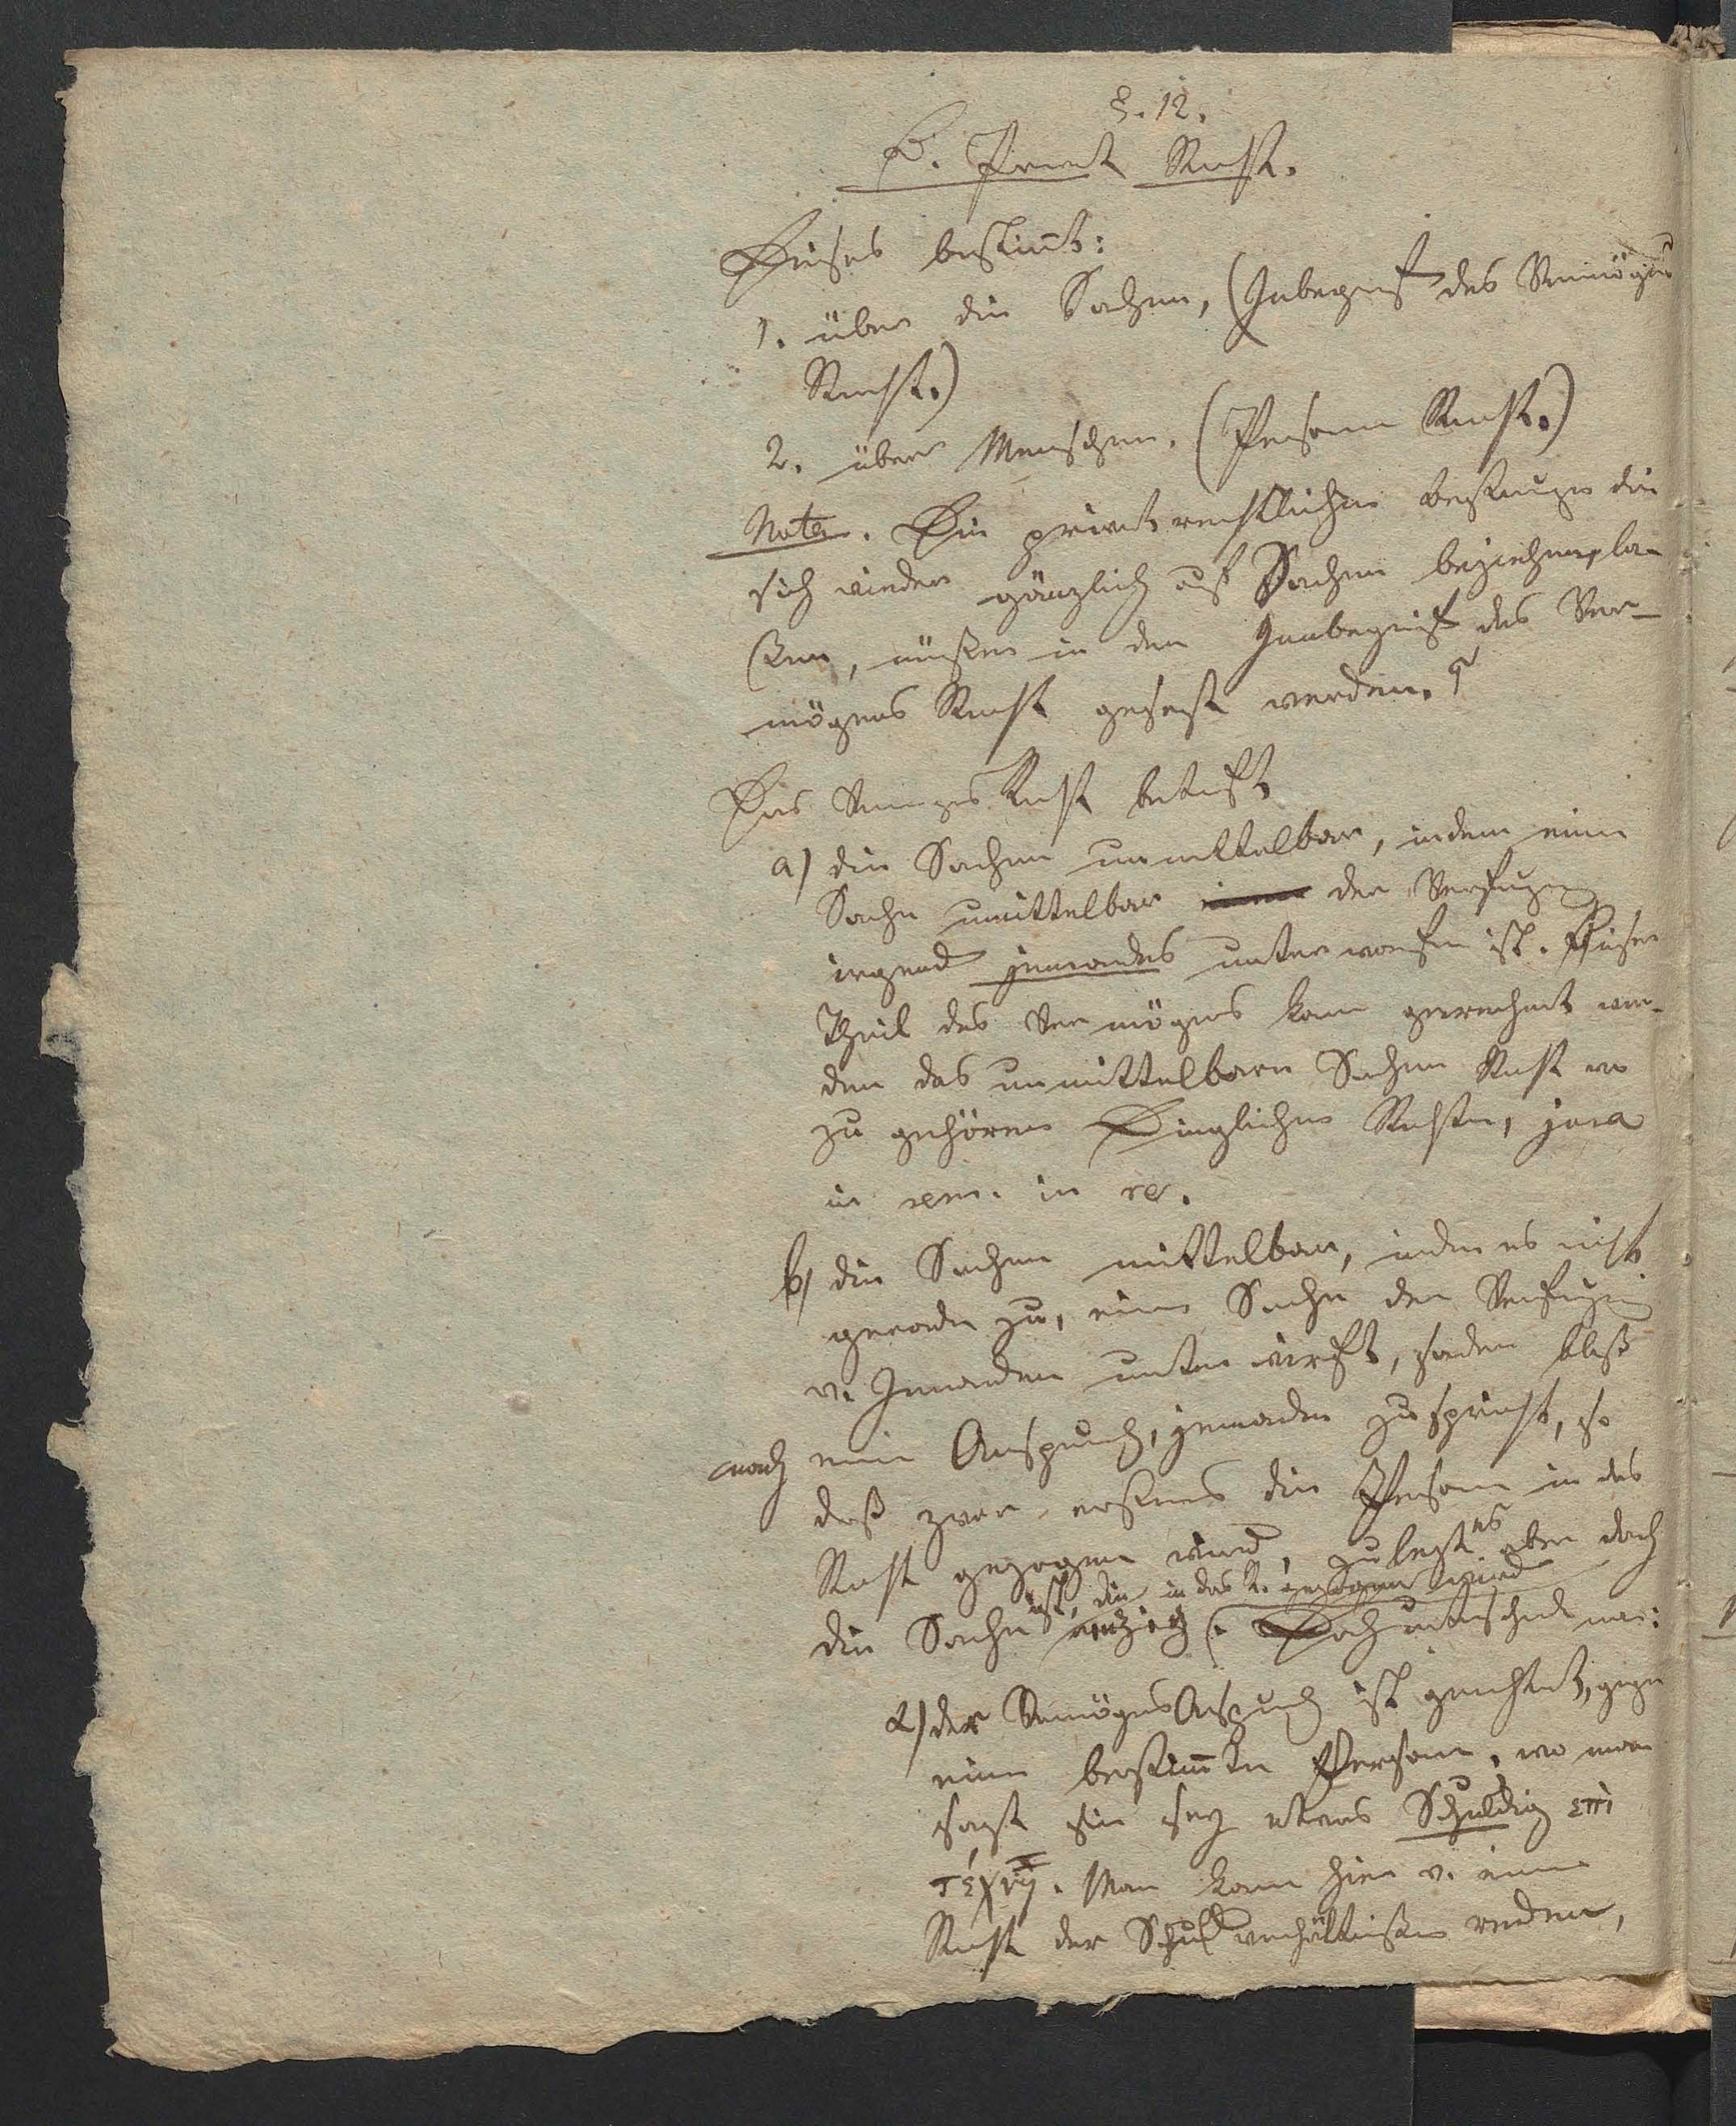 §. 12.
B. Privat Recht.
Dieses bestim̄t:
1. über die Sachen, (Inbegriff des Vermögens
Recht.)
2. über Menschen. (Personen Recht.)
Nota. Die privatrechtlichen die
sich wieder gänzlich auf Sachen beziehen, la-
ßen, müßen in den Innbegriff des Ver-
mögens Recht gesezt werden.
Das Vermögens Recht betrift
a) die Sachen unmittelbar, indem eine
Sache unmittelbar der Verfügung
irgend jemandes unterworfen ist. Dieser
Theil des Vermögens kann gerechnet wer-
den das unmittelbare Sachen Recht wo
zu gehören Dinglichen Rechte, jura
in rem. in re.
b) die Sachen mittelbar, indem es nicht
gerade zu, eine Sache der Verfügung
v. Jemanden unterwirft, sondern bloß
nach einen Anspruch, jemanden zuspricht, so
daß zwar erstens die Person in das
Recht gezogen wird, zulezt es aber doch
die Sache ist, die in das R. gezogen wird
Doch unterscheidet man:
α) der Vermögens Anspruch ist gerichtet, gegen
eine bestim̄te Person, wo man
sagt sie sey etwas Schuldig
Man kann hier v. einem
Recht der Schuldverhältniße reden,